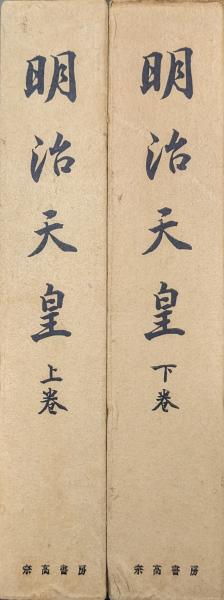 明治天皇
上巻
宗高書房
明治天皇
下巻
宗高書房